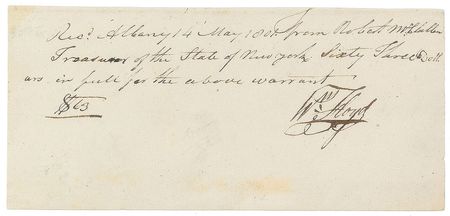 Rec.d Albany 14 May 180 from Robert McClallen
Treasurer of the State of New york Sixty Three Doll
ars in full for the above warrant
$63
Wm Floyd